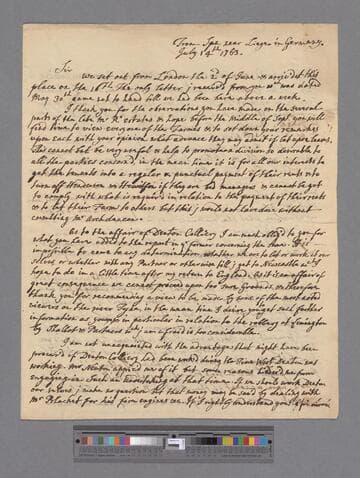 From Spa near Liege in Germany
July 14th 1763.
Sir
We set out from London the 2d of June & arrived at this
place on the 16th. The only letter I received from you was dated
May 30th came not to hand till we had been here above a week.
I thank you for the observations you have made on the several
parts of the late Mr R's estates & hope before the middle of Sept. you will
find time to view every one of the Farms & to set down your remarks
upon each with your opinion what advance they may admit of
It cannot but be very useful & help to promote a division so desirable to
all the parties concerned, in the mean time it is for all our interests to
get the tenants into a regular & punctual payment of their rents & to
turn off Henderson & if they are bad managers & cannot be got
to comply with what is required in relation to the payment of their rents
& to let their Farm to others but this I would not have done without
consulting Mr Archdeacon.
As to the affair of Denton Colliery I am much obliged to you for
what you have added to the report in yr former concerning the same. It is
impossible to come to any determination, whether to let or work it our
selves or whether with any Partner or otherwise till I get to Newcastle wch I
hope to do in a little time after my return to England. As it is an affair of
great consequence we cannot proceed upon too sure Grounds & therefore
thank you for recommending a view to be made by some of the most noted
viewers on the river Tyne, in the mean time I desire you get such further
information as you can in particular in relation to the colliery at Lemington
by Shallots & Partners wch I am afraid is too considerable.
I am not unacquainted with the advantages that might have been
procured if Denton Colliery had been worked during the time West Denton was
working. Mr Newton apprised me of it but some reasons hindered me from
engaging in such an undertaking at that time. If we should work Denton
our selves I make no question but that money may be saved by dealing with
Mr Blacket for his fire engines &c. If I rightly understand you, opinion